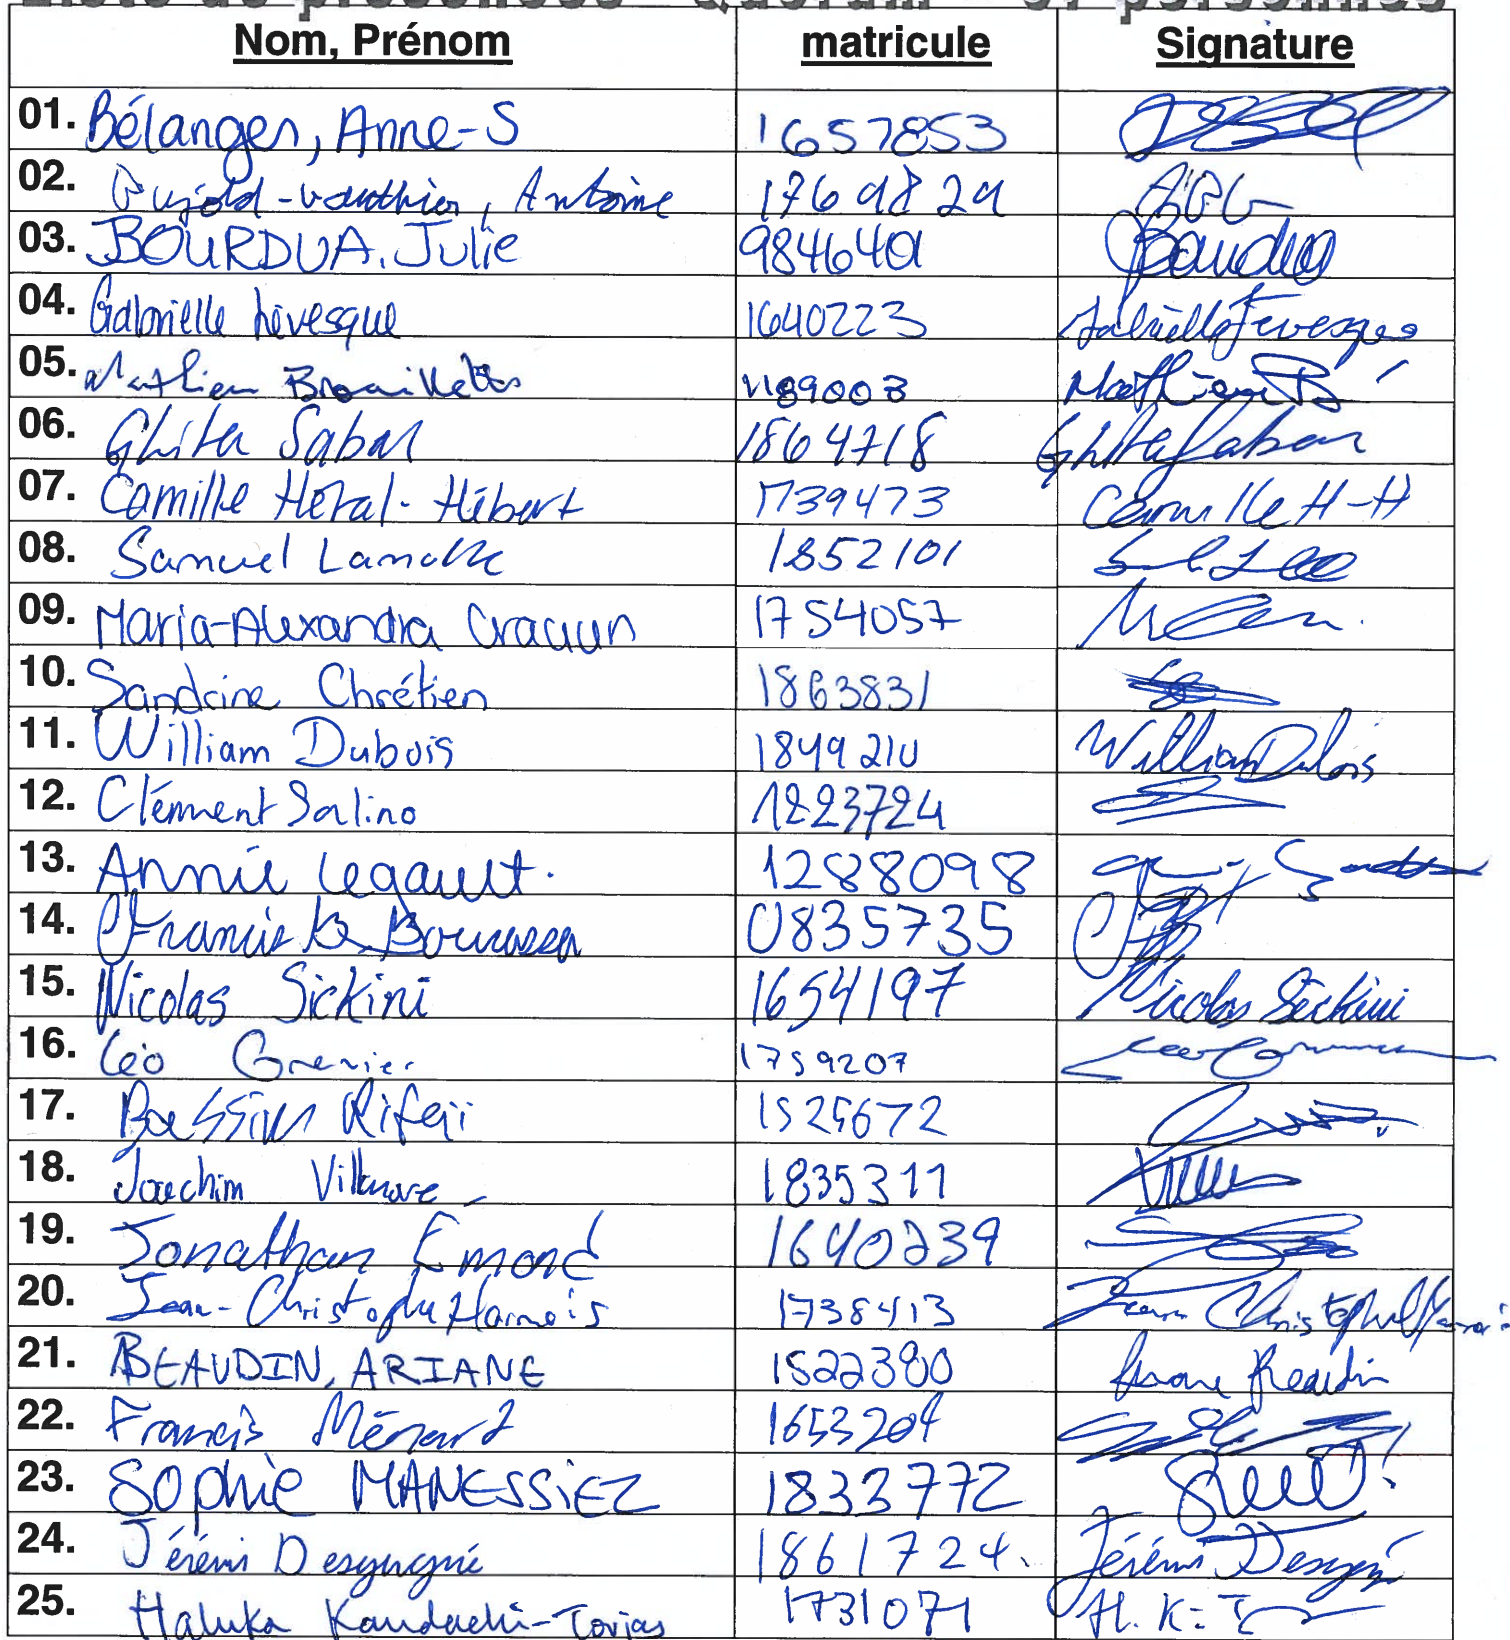 Liste de présences "Quorum" 57 personnes
Nom, Prénom matricule Signature
01. Bélanger, Anne-S 1657853
02. Pujold-Vauthier, Antoine 1769829
03. BOURDUA, Julie 984640 Bourdua
04. Gabrielle Lévesque 1640223 Gabrielle Levesque
05. Mathieu Brouillette 1189003 Mathieu B
06. Ghita Sabar 1864718 Ghita Sabar
07. Camille Héral-Hébert 1739473 Camille H-H
08. Samuel 1852101
09. Maria-Alexandra Craciun 1754057
10. Sandrine Chrétien 1863831
11. William Dubois 1849210 William Dubois
12. Clément Salino 1223724
13. Annie Legault. 1288098
14. Francis B. Bourassa 0835735
15. Nicolas Sickini 1654197 Nicolas Sickini
16. Léo Grenier 1759207 Leo
17. Rifaii 1525672
18. Joachim Villeneuve 1835311
19. Jonathan Emond 1640239
20. Jean-Christophe Harnois 1738413 Jean Christophe Harnois
21. BEAUDIN, ARIANE 1522380 Ariane Beaudin
22. Francis Ménard 1653204
23. Sophie MANESSIEZ 1833772
24. Jérémi 1861724. Jérémi
25. Haluka 1731071 H. K-T